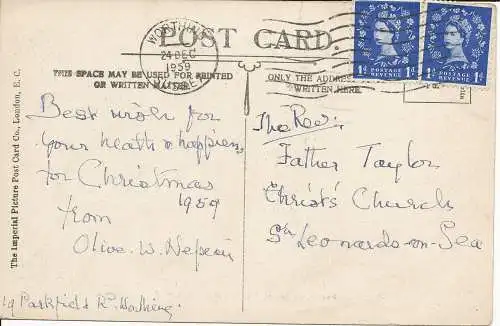 POST CARD.
WORTHING
24 DEC
1959
THIS SPACE MAY BE USED FOR PRINTED
OR WRITTEN MATTER.
ONLY THE ADDRESS
WRITTEN HERE.
1D POSTAGE REVENUE 1D
1D POSTAGE REVENUE 1D
The Imperial Picture Post Card Co., London, E. C.
Best wish for
your health & happiness
for Christmas
1959
from
Olive. W.
19 Parkfield Rd. Worthing.
The Rev:
Father Taylor
Christ's Church
St Leonards-on-Sea